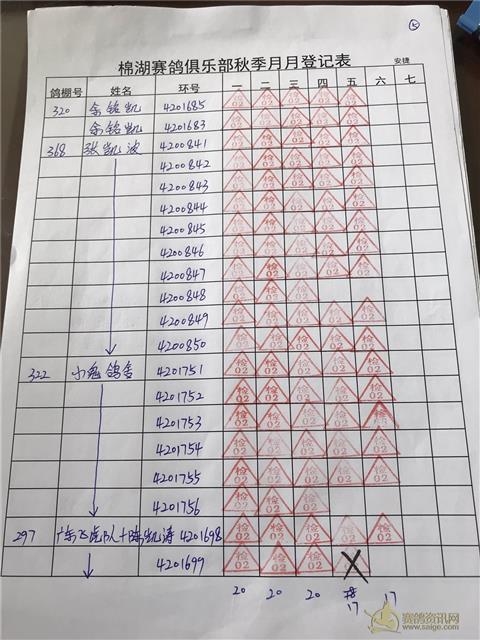 5
棉湖赛鸽俱乐部秋季月月登记表
安捷
鸽棚号 姓名 环号 一 二 三 四 五 六 七
320 余铭凯 4201685 检02 检02 检02 检02 检02
余铭凯 4201683 检02 检02 检02 检02 检02
368 张凯波 4200841 检02 检02 检02 检02 检02
4200842 检02 检02 检02 检02 检02
4200843 检02 检02 检02 检02 检02
4200844 检02 检02 检02 检02 检02
4200845 检02 检02 检02 检02 检02
4200846 检02 检02 检02 检02 检02
4200847 检02 检02 检02 检02 检02
4200848 检02 检02 检02
4200849 检02 检02 检02 检02 检02
4200850 检02 检02 检02 检02 检02
322 小鬼鸽舍 4201751 检02 检02 检02 检02 检02
4201752 检02 检02 检02 检02 检02
4201753 检02 检02 检02 检02 检02
4201754 检02 检02 检02 检02 检02
4201755 检02 检02 检02 检02 检02
4201756 检02 检02 检02
297 广东飞虎队+陈凯涛 4201698 检02 检02 检02 检02 检02
4201699 检02 检02 检02
20 20 20 17 17
赛鸽资讯网
www.saige.com